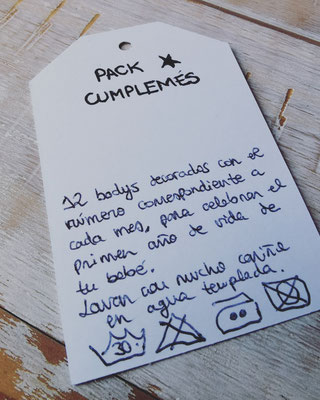 PACK
CUMPLEMÉS
12 bodys decorados con el
número correspondiente a
cada mes, para celebrar el
primer año de vida de
tu bebé.
Lavar con mucho cariño
en agua templada.
30